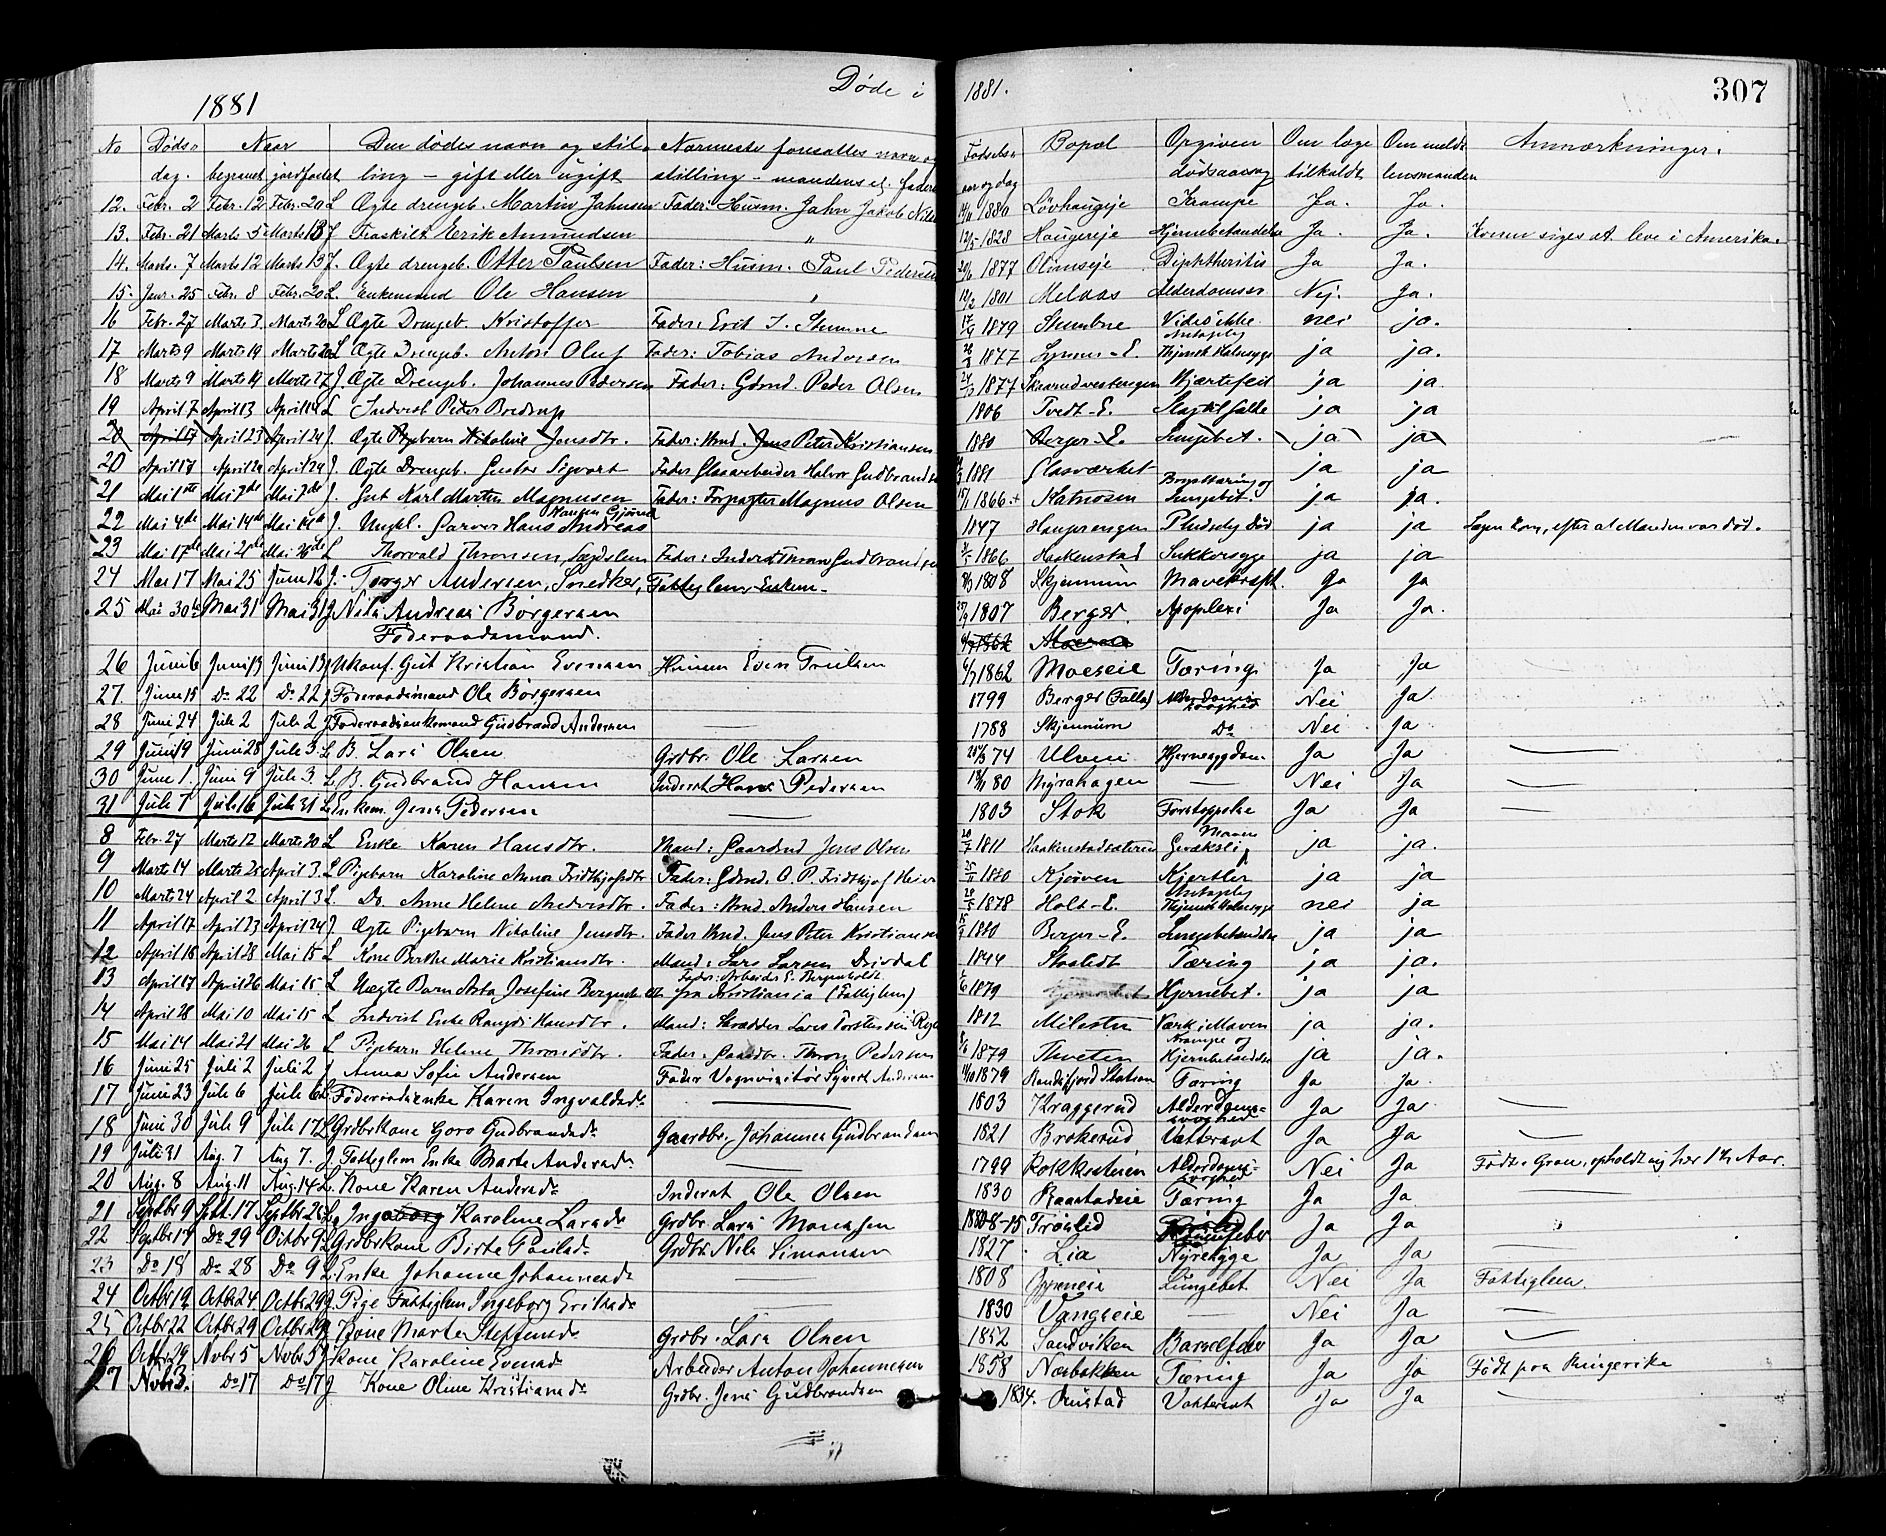 1881
Døde i 1881.
307
No Døds- Naar Den dødes navn og stil- Nærmeste foresattes navn og Fødsels- Bopæl Opgiven Om læge Om meldt Anmærkninger.
dag. begravet jordfæstet ling - gift eller ugift stilling - mandens el. faders aar og dag dødsaarsag tilkaldt lensmanden
12. Febr. 2 Febr. 12 Febr. 20 L Ægte drengeb. Martin Jahnsen Fader: Husm. Jahn Jakob 1880 Løvhaugeje Krampe Ja. Ja.
13. Febr. 21 Marts 5 Marts 13 J Fraskilt Erik Amundsen " 12/5 1828 Haugereje Hjernebetændelse Ja. Ja. Konen siges at leve i Amerika.
14. Marts 7 Marts 12 Marts 13 J. Ægte drengeb. Otter Paulsen Fader: Husm. Paul Pedersen 1877 Olimseje Diphtheritis Ja Ja.
15. Janr. 25 Febr. 8 Febr. 20 L. Enkemand Ole Hansen " 1801 Melaas Alderdomssv Nej. Ja.
16 Febr. 27 Marts 3 Marts 20 L Ægte Drengeb. Kristoffer Fader: Erik J. Stumne 1879 Stumbne Vides ikke nei ja.
17 Marts 9 Marts 19 Marts 20 L Ægte Drengeb. Anton Oluf Fader: Tobias Andersen 1877 Antagelig Halssyge ja ja.
18 Marts 9 Marts 19 Marts 27 J. Ægte Drengeb. Johannes Pedersen Fader: Gdmd. Peder Olsen 1877 Skaarudvestengen Hjærtefeil ja ja.
19 April 7 April 13 April 14 L Inderst Peder Bredrup 1806 Tvedt-E. Slagtilfælde ja ja
20 April 17 April 23 April 24 J. Ægte Pigebarn Nikoline Jensdtr. Fader: Hmd. Jens Peter Kristiansen 1880 Berger-E. Lungebet. ja ja
20 April 17 April 24 J. Ægte Drengeb. Gustav Sigvart Fader Glasarbeider Halvor Gudbrands 1881 Glasværket ja ja
21 Mai 1ste Mai 7de Mai 7de J. Gut Karl Martin Magnusen Fader: Forpagter Magnus Olsen 15/1 1866 Katnosen Brysttæring og Lungebet. ja ja.
22 Mai 4de Mai 14de Mai 14de J. Ungkl. Garver Hans Andreas Hansen Gjørud 1847 Haugerengen Pludselig Død ja ja Lægen kom, efter at Manden var død.
23 Mai 17de Mai 26de L Thorvald Thronsen, Lægdslem Fader: Inderst Thron Gudbrandsen 1866 Haakenstad Sukkersyge ja ja
24 Mai 17 Mai 25 Juni 12 J. Torger Andersen, Snedker, Fattiglem Enkem. 1808 Skjennum Mavekræft Ja Ja
25 Mai 30te Mai 31 Mai 31 J Nils Andreas Börgersen 1807 Berger. Apoplexi Ja Ja.
Föderaadsmand.
26 Juni 6 Juni 13 Juni 13 J Ukonf. Gut Kristian Evensen Husmn Even Trulsen 1862 Moeseie Tæring Ja Ja
27 Juni 15 Do 22 Do 22 J Föderaadsmand Ole Börgersen 1799 Berger Alderdomssvaghed Nei Ja
28 Juni 24 Juli 2 Juli 2 J Föderaadsenkemand Gudbrand Andersen 1788 Skjennum Do Nei Ja
29 Juni 19 Juni 28 Juli 3 L B. Lars Olsen Grdbr. Ole Larsen 74 Ulven Hjernesygdom Ja Ja
30 Juni 1 Juni 9 Juli 3 L B. Gudbrand Hansen Inderst Hans Pedersen 80 Myrahagen — Nei Ja
31 Juli 7 Juli 16 Juli 31 L Enkem. Jens Pedersen 1803 Stok Forstoppelse Ja Ja
8 Febr. 27 Marts 12 Marts 20 L Enke Karen Hansdtr. Mand: Gaardmd Jens Olsen 1811 Haakenstadsæteren ja ja.
9 Marts 14 Marts 25 April 3. L Pigebarn Karoline Anna Fridthjofsdtr Fader: Gdmd. O. P. Fridthjof 1880 Kjørven Kjertler ja ja
10 Marts 24 April 2 April 3 L. Do. Anne Helene Andersdtr. Fader: Hmd. Anders Hansen 1878 Holt-E. Antagelig Halssyge nei ja
11 April 17 April 23 April 24 J. Ægte Pigebarn Nikoline Jensdtr. Fader Hmd. Jens Peter Kristiansen 1880 Berger-E. Lungebetændelse ja ja
12 April 18 April 28 Mai 15 L Kone Berthe Marie Kristiansdtr. Mand: Lars Larsen Drivdal 1844 Tæring ja ja.
13 April 17 April 26 Mai 15 L Uægte Barn Asta Josefine Bergenholdt Fader: Arbeider E. Bergenholdt fra Kristiania (Fattiglem) 1879 Hjernebet. ja ja
14 April 28 Mai 10 Mai 15 L Inderst Enke Rangdi Hansdtr. Mand: Skrædder Lars Torstensen 1812 Milesten Værk i Maven ja ja.
15 Mai 14 Mai 21 Mai 26 L Pigebarn Helene Thronsdtr. Fader: Gaardbr. Thron Pedersen 1879 Thveten Krampe og Hjernebetændelse ja ja.
16 Juni 25 Juli 2 Juli 2 J Anna Sofie Andersen Fader Vognvisitör Syvert Andersen 1879 Randsfjord Station Tæring Ja Ja
17 Juni 23 Juli 6 Juli 6 L Föderaadsenke Karen Ingvaldsdr 1803 Kraggerud Alderdomssvaghed Ja Ja
18 Juni 30 Juli 9 Juli 17 L Grdbrkone Goro Gudbrandsdr Gaardbr. Johannes Gudbrandsen 1821 Brokerud Vattersot Ja Ja
19 Juli 31 Aug. 7 Aug 7. J Fattiglem Enke Marte Andersdr 1799 Rokkesteien Alderdomssvaghed Nei Ja Födt i Gran, opholdt sig her 1½ Aar.
20 Aug. 8 Aug. 11 Aug. 14 L. Kone Karen Andersdr Inderst Ole Olsen 1830 Raastadeie Tæring Ja Ja
21 Septbr 9 Sept. 17 Septbr 25 L Ingeborg Karoline Larsdr Grdbr Lars Monssen Tröslid Ja Ja
22 Septbr 19 Do 29 Octbr 9 L Grdbrkone Birte Paulsdr Grdbr. Nils Simonsen 1827 Lia Nyresyge Ja Ja
23 Do 18 Do 28 Do 9 L Enke Johanne Johannesdr 1808 Lungebet Nei Ja Fattiglem
24 Octbr 19 Octbr 24 Octbr 29 J Pige Fattiglem Ingeborg Eriksdr 1830 Vangseie Nei Ja
25 Octbr 22 Octbr 29 Octbr 29 J Kone Marte Steffensdr Grdbr. Lars Olsen 1852 Sandviken Barselfeber Ja Ja
26 Octbr 29 Novbr 5 Novbr 5 J Kone Karoline Evensdr Arbeider Anton Johannesen 1858 Næsbakken Tæring Ja Ja Födt paa Ringerike
27 Novbr 3. Do 17 Do 17 J Kone Oline Kristiansdr Grdbr. Jens Gudbrandsen 1834. Rustad Vattersot Ja Ja